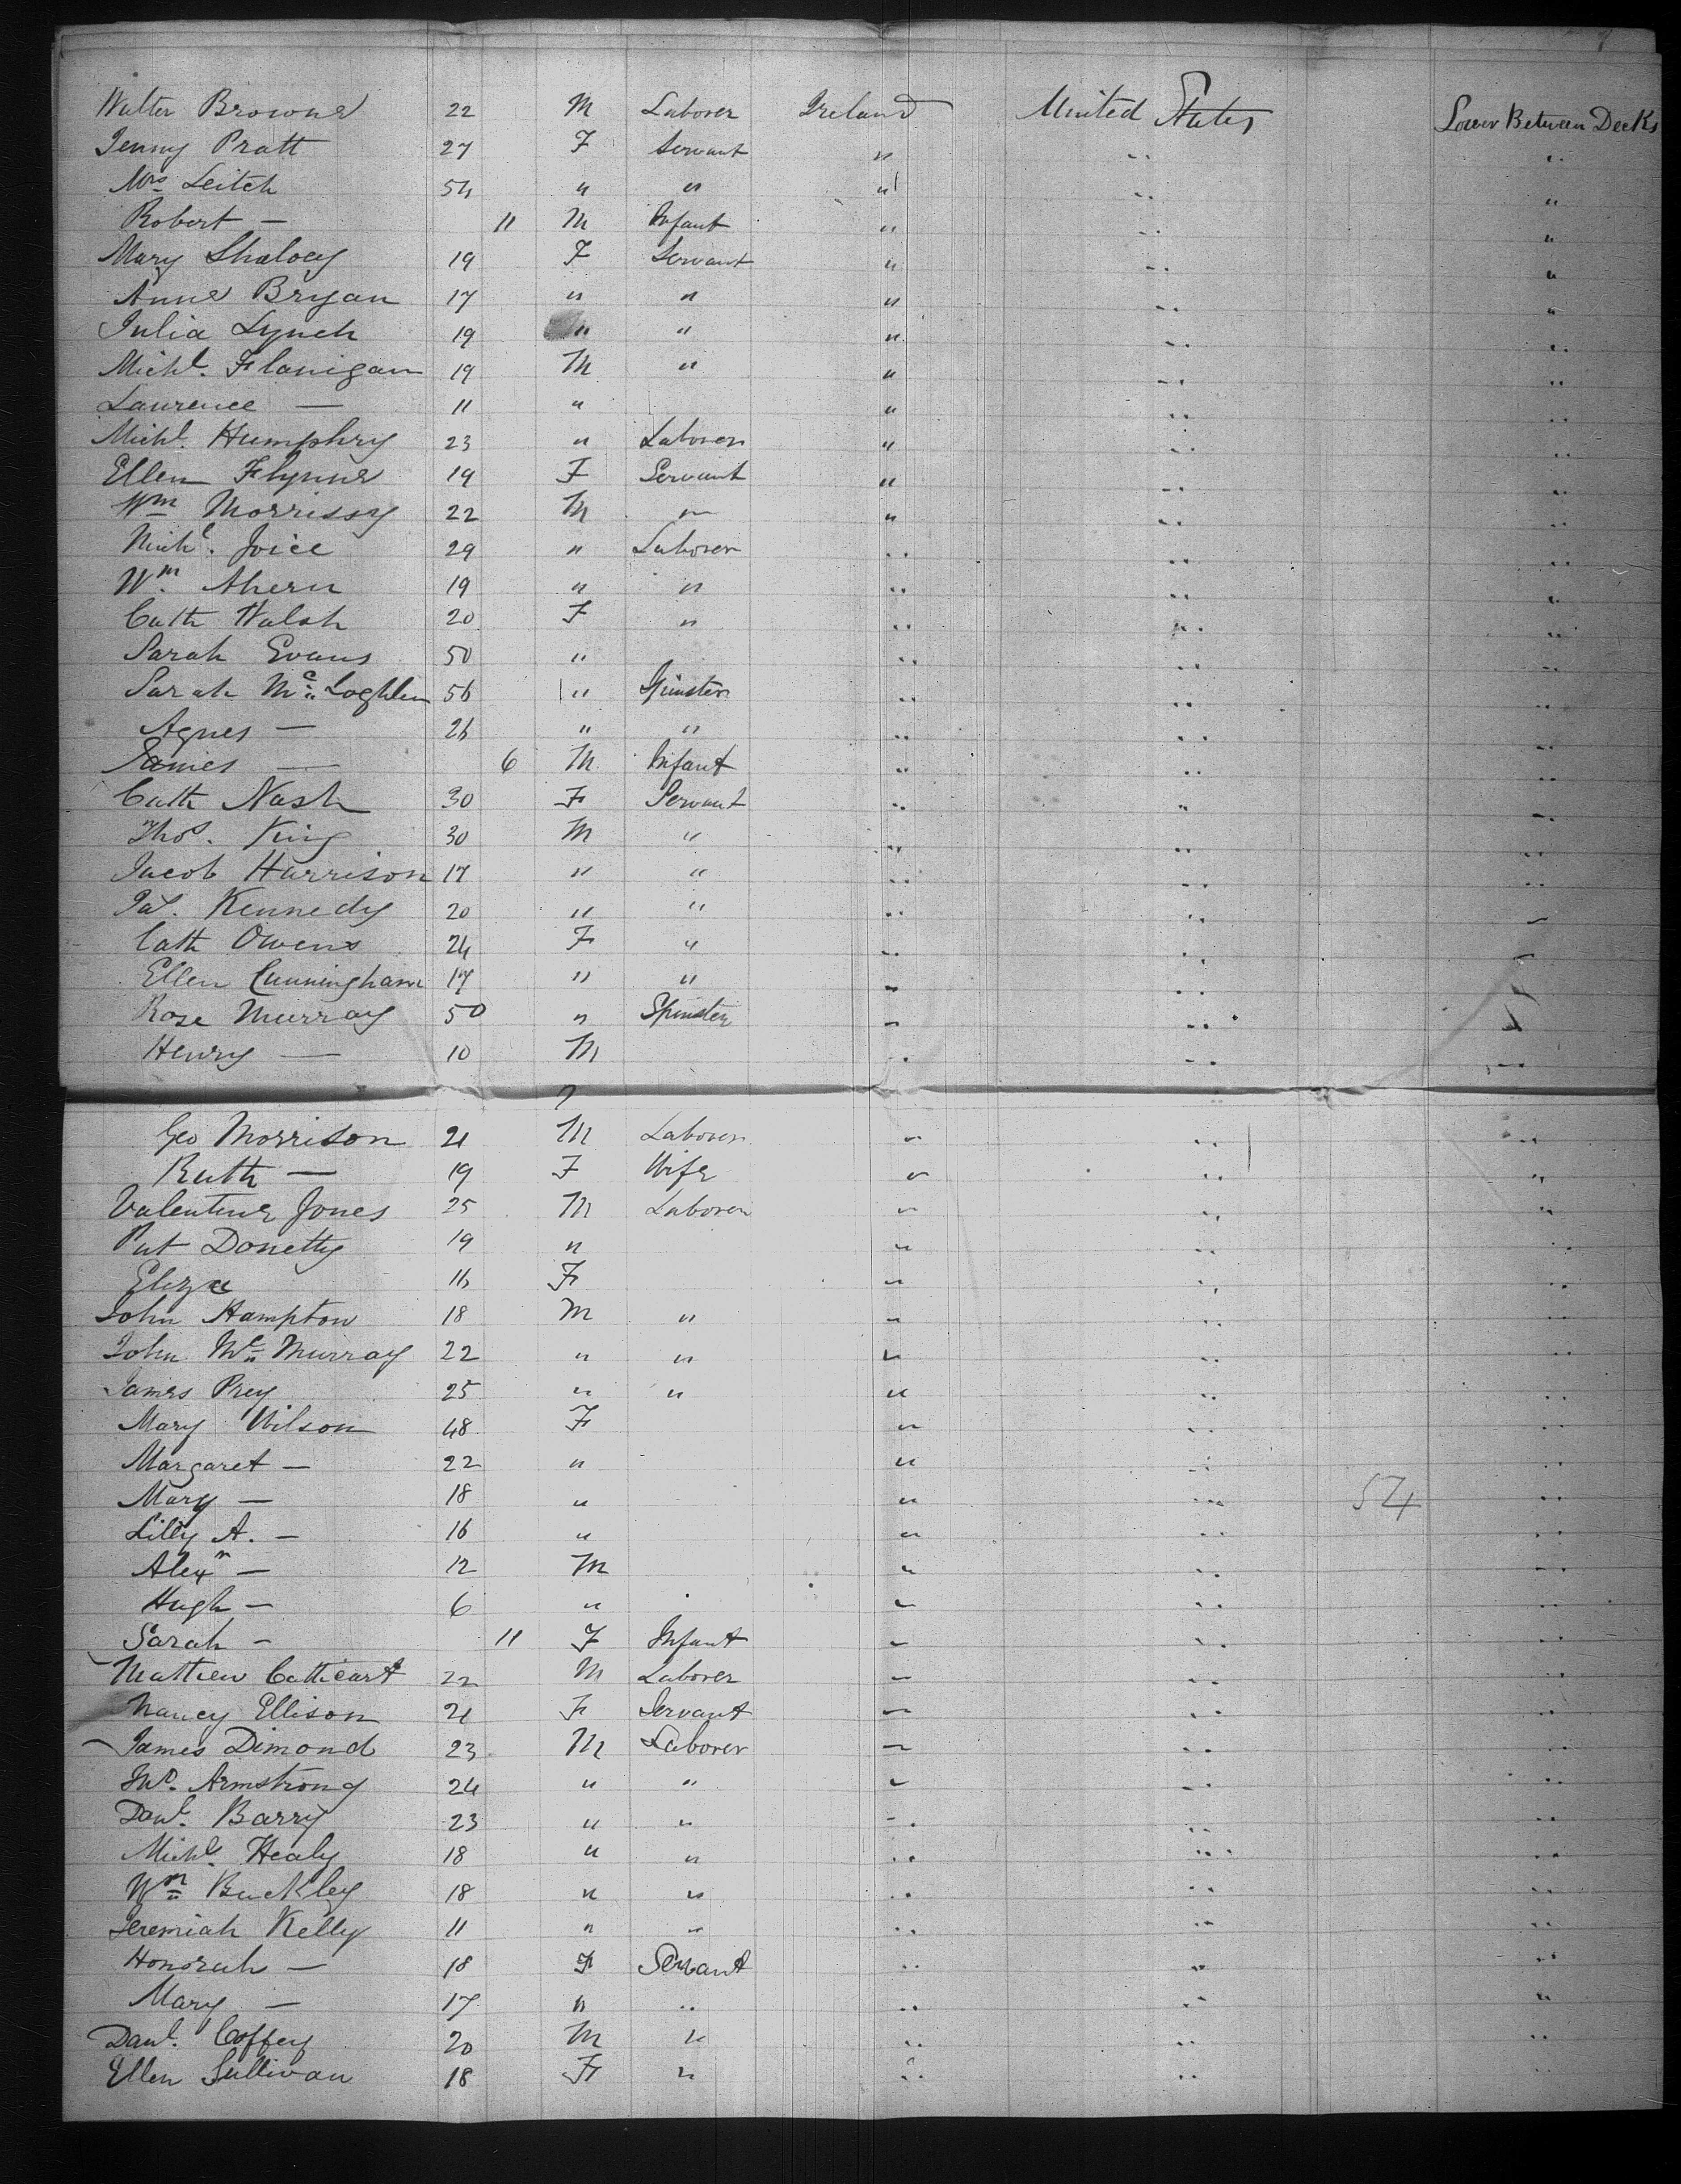 Walter Browne 22 M Laborer Ireland United States Lower Between Decks
Jenny Pratt 27 F Servant " " "
Mrs Leitch 54 " " " " "
Robert — 11 M Infant " " "
Mary 19 F Servant " " "
Anne Bryan 17 " " " " "
Julia Lynch 19 " " " " "
Michl. Flanigan 19 M " " " "
Laurence — 11 " " " "
Michl. Humphry 23 " Laborer " " "
Ellen Flynne 19 F Servant " " "
Wm Morrissy 22 M " " " "
Michl. Joice 29 " Laborer " " "
Wm. Ahern 19 " " " " "
Cath Walsh 20 F " " " "
Sarah Evans 50 " " " "
Sarah Mc Loghlen 56 " Spinster " " "
Agnes — 26 " " " " "
James — 6 M Infant " " "
Cath Nash 30 F Servant " " "
Thos. King 30 M " " " "
Jacob Harrison 17 " " " " "
Pat. Kennedy 20 " " " " "
Cath Owens 24 F " " " "
Ellen Cunningham 17 " " " " "
Rose Murray 50 " Spinster " " "
Henry — 10 M " " "
Geo Morrison 21 M Laborer " " "
Ruth — 19 F Wife " " "
Valentine Jones 25 M Laborer " " "
Pat Donetty 19 " " " "
Eliza 16 F " " "
John Hampton 18 M " " " "
John Mc Murray 22 " " " " "
James Prey 25 " " " " "
Mary Wilson 48 F " " "
Margaret — 22 " " " "
Mary — 18 " " " 54 "
Lilly A. — 16 " " " "
Alexr — 12 M " " "
Hugh — 6 " " " "
Sarah — 11 F Infant " " "
Mathew Cathcart 22 M Laborer " " "
Nancy Ellison 21 F Servant " " "
James Dimond 23 M Laborer " " "
Jno. Armstrong 24 " " " " "
Danl. Barry 23 " " " " "
Michl. Healy 18 " " " " "
Wm Buckley 18 " " " " "
Jeremiah Kelly 11 " " " " "
Honorah — 18 F Servant " " "
Mary — 17 " " " " "
Danl. Coffey 20 M " " " "
Ellen Sullivan 18 F " " " "